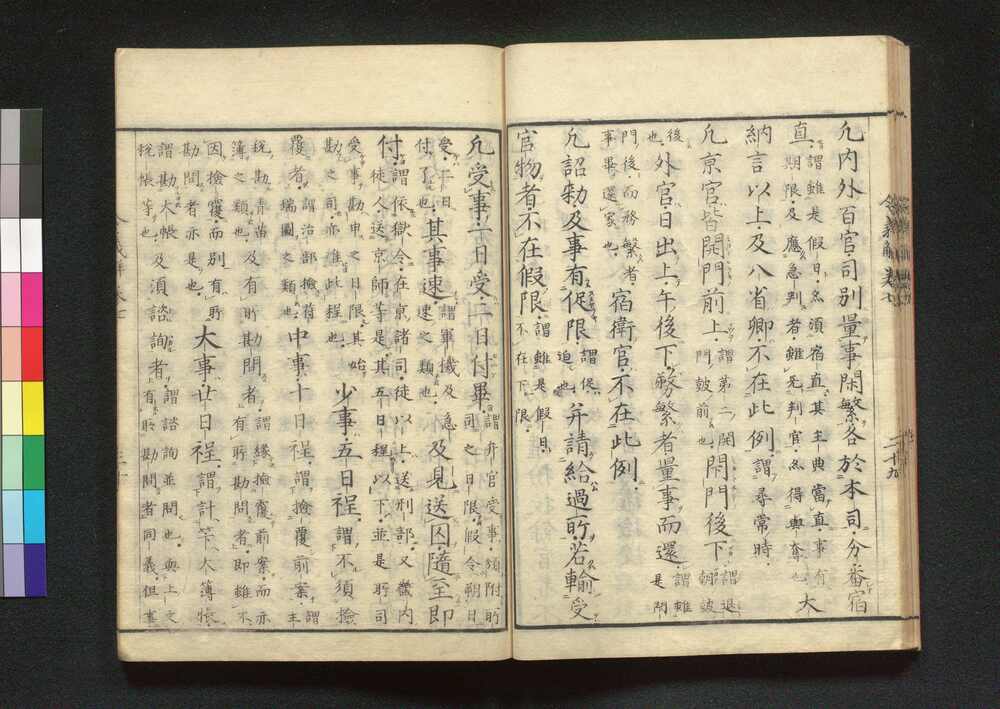 凢内外百官司別量事閑繁各於本司分番宿
直謂雖是假日亦須宿直其主典當直事有期限及應急判者雖无判官亦得與奪也大
納言以上及八省卿不在此例謂尋常時
凢京官皆開門前上謂第二開門皷前也閇門後下謂退朝皷
後也外官日出上午後下務繁者量事而還謂雖是閇
門後而務繁者事畢還家也宿衛官不在此例
凢詔勑及事有促限謂促迫也并請給過所若輸受
官物者不在假限謂雖是假日不在下限
令義解卷七
二十九
凢受事一日受二日付畢謂弁官受事須附所司之日限假令朔日
受二日付了也其事速謂軍機及急速之類也及見送囚隨至即
付謂依獄令在京諸司徒以上送刑部又畿内徒人送京師等是其五日程以下並是所司
受事勘申之日限其始勘之司亦准此程也少事五日程謂不須撿
覆者謂治部撿符瑞圖之類也中事十日程謂撿覆前案謂主
税勘青苗簿之類也及有所勘問者謂緣撿覆前案而亦有所勘問者即雖不
因撿覆而別有所勘問者亦是也大事廿日程謂計竿大簿帳
謂勘大帳税帳等也及須諮詢者謂諮詢並問也與上文有所勘問者同義但事